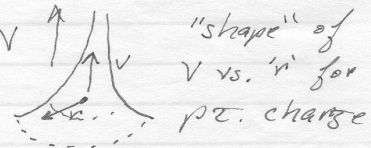 V
V
r
"shape" of
V vs. 'r' for
pt. charge